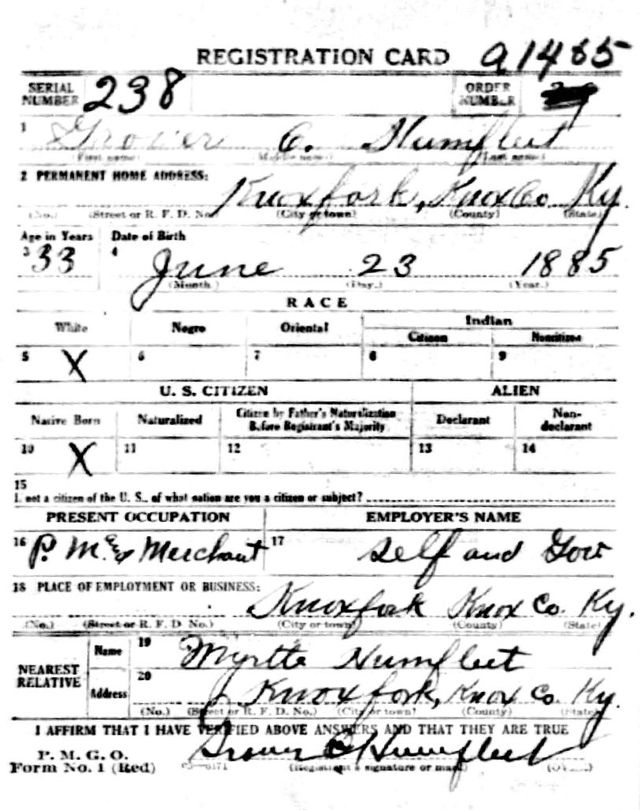 REGISTRATION CARD a1485
SERIAL NUMBER 238 ORDER NUMBER
1 Grover C. Humfleet
(First name) (Middle name) (Last name)
2 PERMANENT HOME ADDRESS:
Knoxfork, Knox Co Ky.
(No.) (Street or R. F. D. No.) (City or town) (County) (State)
Age in Years Date of Birth
3 33 4 June 23 1885
(Month.) (Day.) (Year.)
RACE
White Negro Oriental Indian
Citizen Noncitizen
5 X 6 7 8 9
U. S. CITIZEN ALIEN
Native Born Naturalized Citizen by Father's Naturalization Before Registrant's Majority Declarant Non-declarant
10 X 11 12 13 14
15
If not a citizen of the U. S., of what nation are you a citizen or subject?
PRESENT OCCUPATION EMPLOYER'S NAME
16 P. M. & Merchant 17 Self and Gov
18 PLACE OF EMPLOYMENT OR BUSINESS:
Knoxfork Knox Co. Ky.
(No.) (Street or R. F. D No.) (City or town) (County) (State)
NEAREST RELATIVE
Name 19 Myrtle Humfleet
Address 20 Knoxfork, Knox Co Ky.
(No.) (Street or R. F. D. No.) (City or town) (County) (State)
I AFFIRM THAT I HAVE VERIFIED ABOVE ANSWERS AND THAT THEY ARE TRUE
P. M. G. O.
Form No. 1 (Red) Grover C Humfleet
(Registrant's signature or mark)